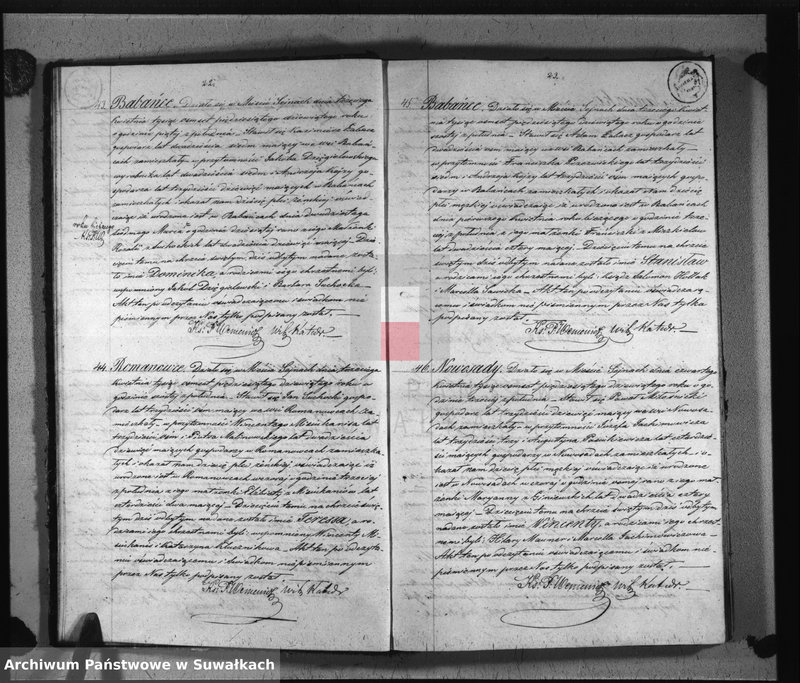 22.
43. Babańce. Działo się w Mieście Sejnach dnia trzeciego
kwietnia tysiąc ośmset pięćdziesiątego dziewiątego roku
o godzinie piątej z południa. Stawił się Kazimierz
gospodarz lat dwadzieścia siedm mający we wsi Babań-
cach zamieszkały w przytomności Jakuba Dzięgielewskiego
wyrobnika lat dwadzieścia siedm i Andrzeja
gospodarza lat trzydzieści dziewięć mających w Babańcach
zamieszkałych i okazał nam dziecię płci żeńskiej oświad-
czając iż urodzone jest w Babańcach dnia dwudziestego
roku bieżącego
siódmego Marca o godzinie dziesiątej rano z jego Małżonki
Rozalii z lat dwadzieścia dziewięć mającej. Dzie-
cięciu temu na chrzcie świętym dziś odbytym nadane zosta-
ło imię Dominika, a rodzicami jego chrzestnemi byli:
wspomniony Jakub Dzięgielewski i Barbara Suchocka.
Akt ten po odczytaniu oświadczającemu i świadkom nie-
piśmiennym przez Nas tylko podpisany został.
Ks. P. Wik. Katedr.
44. Romanowce. Działo się w Mieście Sejnach dnia trzeciego
kwietnia tysiąc ośmset pięćdziesiątego dziewiątego roku o
godzinie szóstej z południa. Stawił się Jan Suchocki gospo-
darz lat trzydzieści ośm mający we wsi Romanowcach za-
mieszkały w przytomności Wincentego lat
trzydzieści ośm i Piotra Malinowskiego lat dwadzieścia
dziewięć mających gospodarzy w Romanowcach zamieszka-
łych i okazał nam dziecię płci żeńskiej oświadczając iż
urodzone jest w Romanowcach wczoraj o godzinie trzeciej
z południa z jego małżonki Elżbiety z lat
czterdzieści dwa mającej. Dziecięciu temu na chrzcie świę-
tym dziś odbytym nadane zostało imię Teressa, a ro-
dzicami jego chrzestnemi byli: wspomniony Wincenty
i Katarzyna. Akt ten po odczyta-
niu oświadczającemu i świadkom niepiśmiennym
przez Nas tylko podpisany został
Ks. P. Wik. Katedr.
23.
45. Babańce. Działo się w Mieście Sejnach dnia trzeciego kwiet-
nia tysiąc ośmset pięćdziesiątego dziewiątego roku o godzinie
szóstej z południa. Stawił się Adam gospodarz lat
dwadzieścia ośm mający we wsi Babańcach zamieszkały
w przytomności Franciszka lat trzydzieści
siedm i Andrzeja lat trzydzieści ośm mających gospo-
darzy w Babańcach zamieszkałych i okazał Nam dziecię
płci męskiej oświadczając iż urodzone jest w Babańcach
dnia pierwszego kwietnia roku bieżącego o godzinie trze-
ciej z południa z jego małżonki Franciszki z
lat dwadzieścia cztery mającej. Dziecięciu temu na chrzcie
świętym dziś odbytym nadane zostało imię Stanisław
a rodzicami jego chrzestnemi byli: Salomon
i Marcella Sawicka. Akt ten po odczytaniu oświadczają-
cemu i świadkom nie piśmiennym przez Nas tylko
podpisany został.
Ks. P. Wik. Katedr.
46. Nowosady. Działo się w Mieście Sejnach dnia czwartego
kwietnia tysiąc ośmset pięćdziesiątego dziewiątego roku o go-
dzinie trzeciej z południa. Stawił się Paweł
gospodarz lat trzydzieści dziewięć mający we wsi Nowosa-
dach zamieszkały w przytomności Józefa
lat trzydzieści trzy i Augustyna lat czterdzie-
ści mających gospodarzy w Nowosadach zamieszkałych i o-
kazał nam dziecię płci męskiej oświadczając iż urodzone
jest w Nowosadach wczoraj o godzinie ósmej rano z jego mał-
żonki Maryanny z lat dwadzieścia cztery
mającej. Dziecięciu temu na chrzcie świętym dziś odbytym
nadane zostało imię Wincenty, a rodzicami jego chrzest-
nemi byli: Hilary i Marcella
Akt ten po odczytaniu oświadczającemu i świadkom nie-
piśmiennym przez Nas tylko podpisany został.
Ks. P. Wik. Katedr.
Archiwum Państwowe w Suwałkach